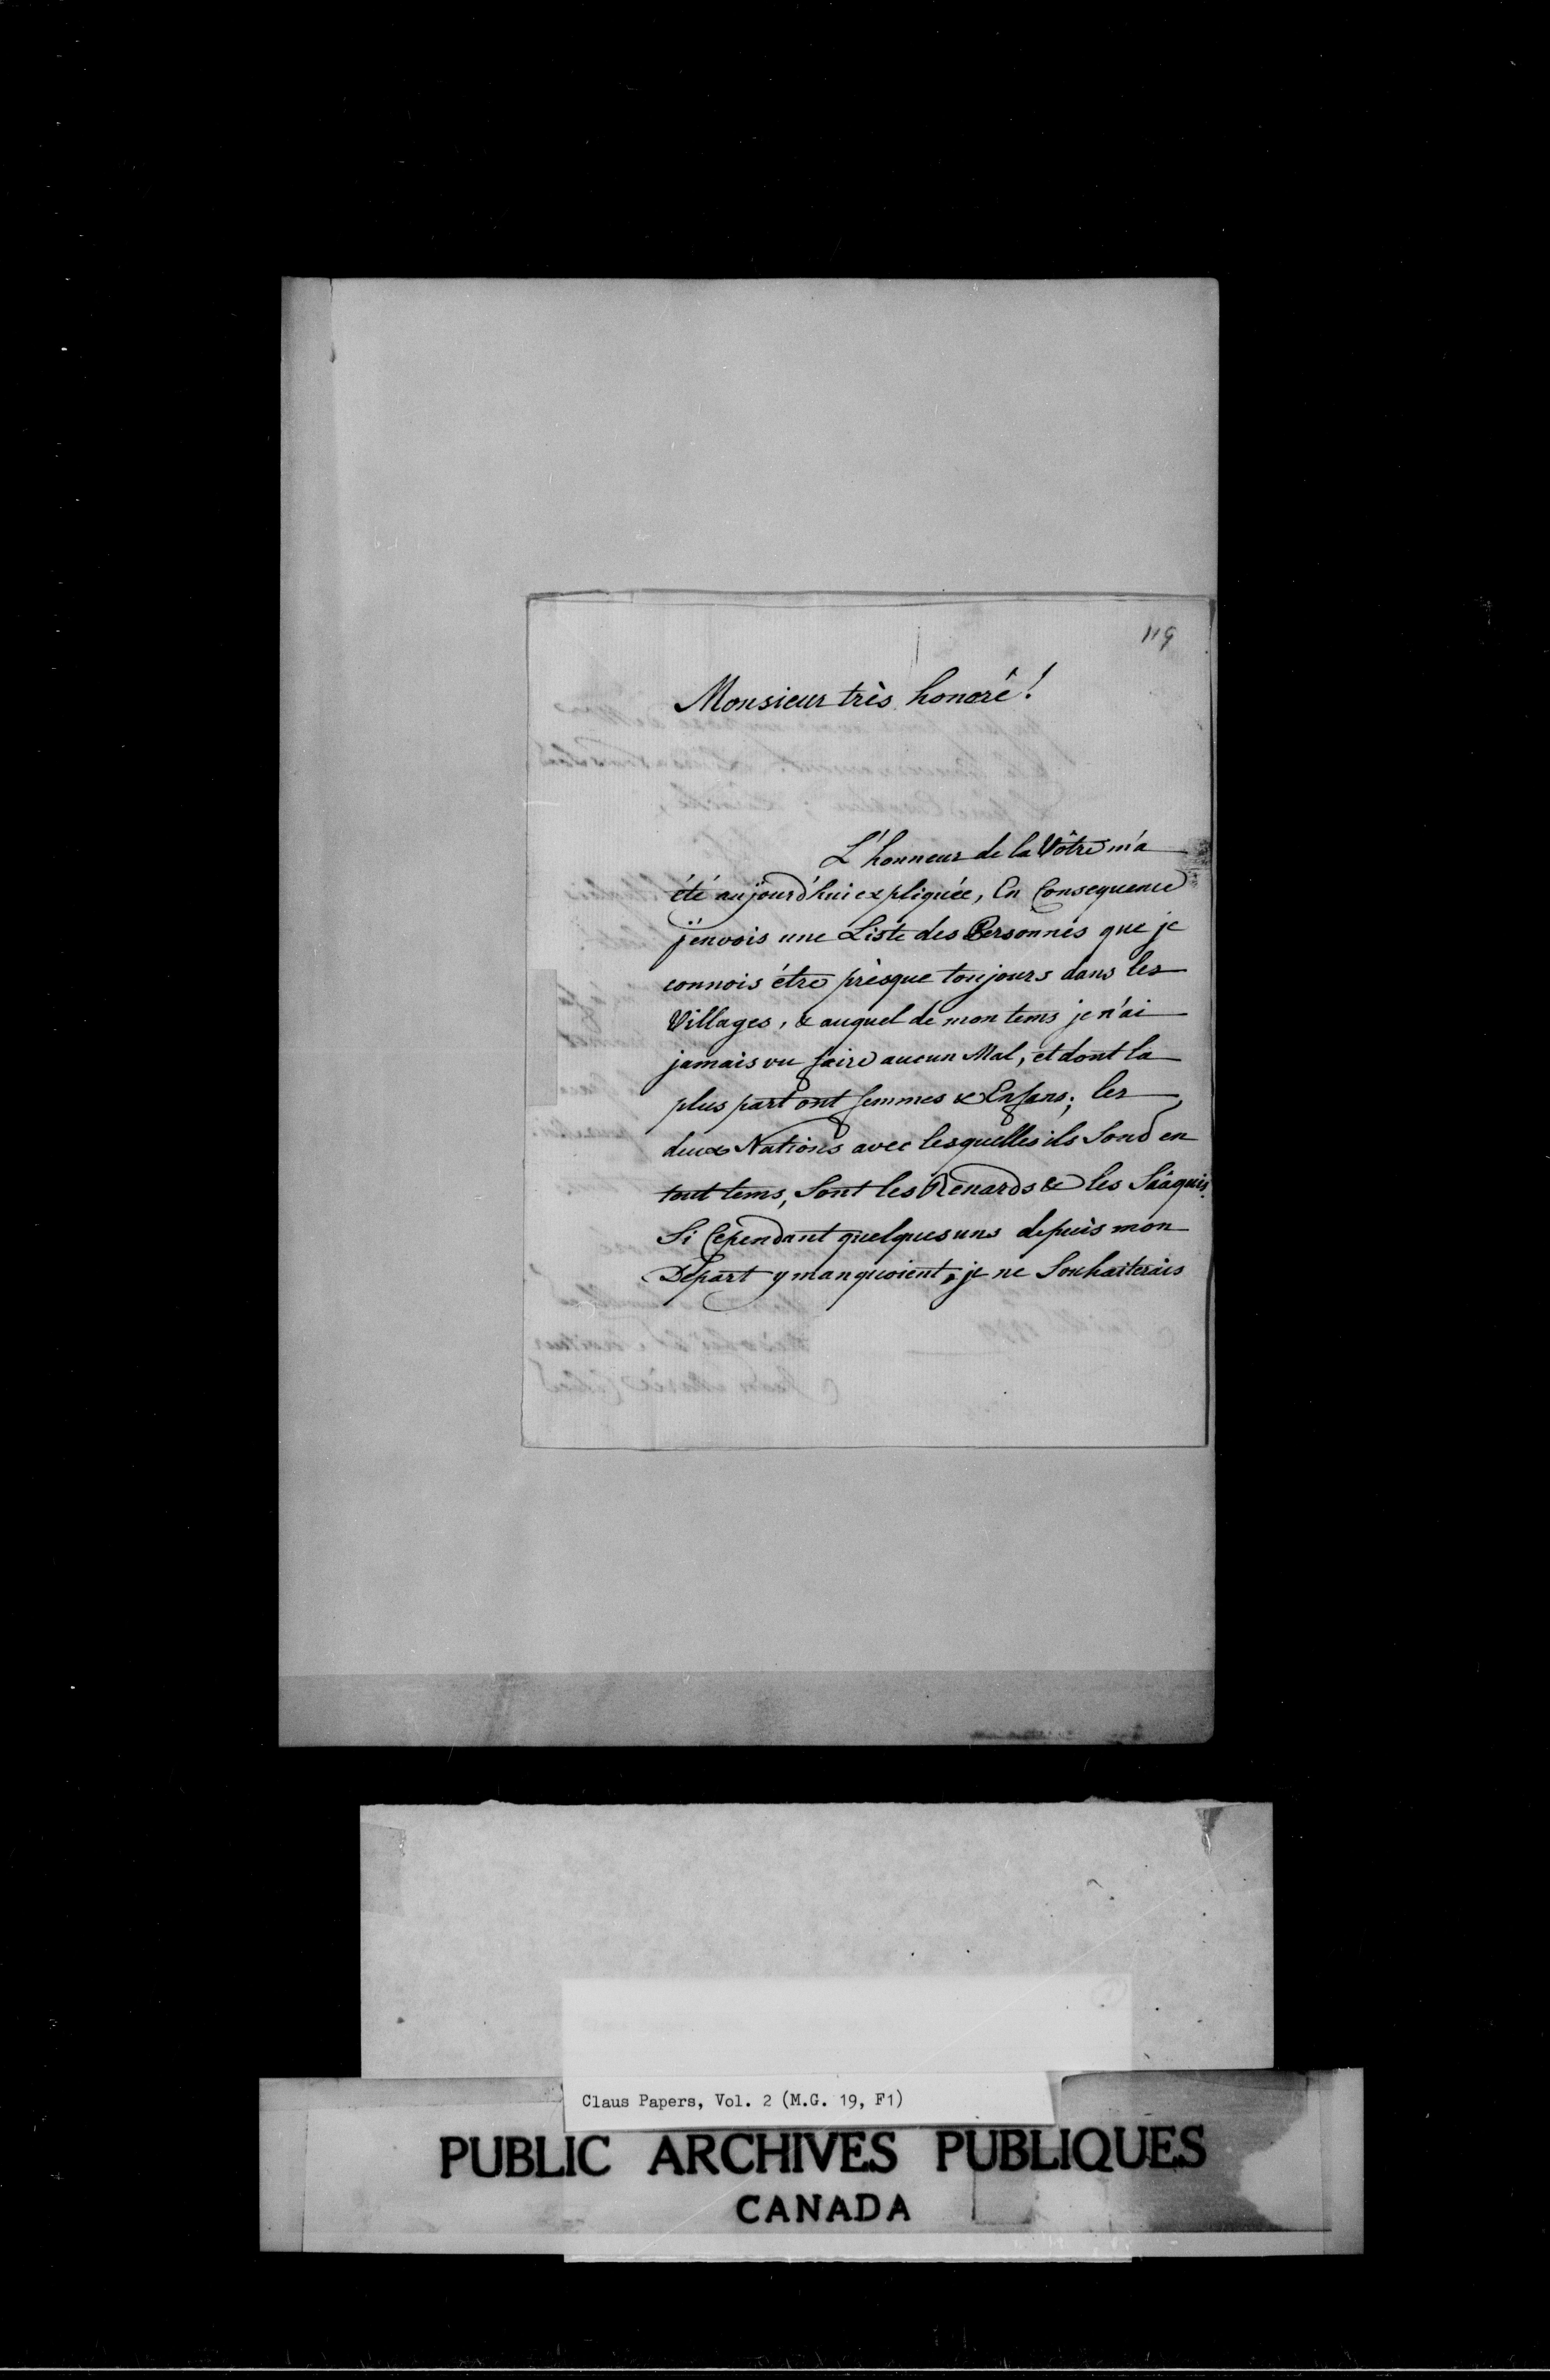 119
Monsieur très honoré!
L'honneur de la Vôtre m'a
été aujourd'hui expliquée, En Consequence
j'envois une Liste des Personnes que je
connois être prèsque toujours dans les
Villages, & auquel de mon tems je n'ai
jamais vu faire aucun Mal, et dont la
plus part ont femmes & Enfans; les
deux Nations avec lesquelles ils Sond en
tout tems, Sont les Renards & les Sâàquis.
Si Cependant quelques uns depuis mon
Départ y manquoient, je ne Souhaiterais
Claus Papers, Vol. 2 (M.G. 19, F1)
PUBLIC ARCHIVES PUBLIQUES
CANADA